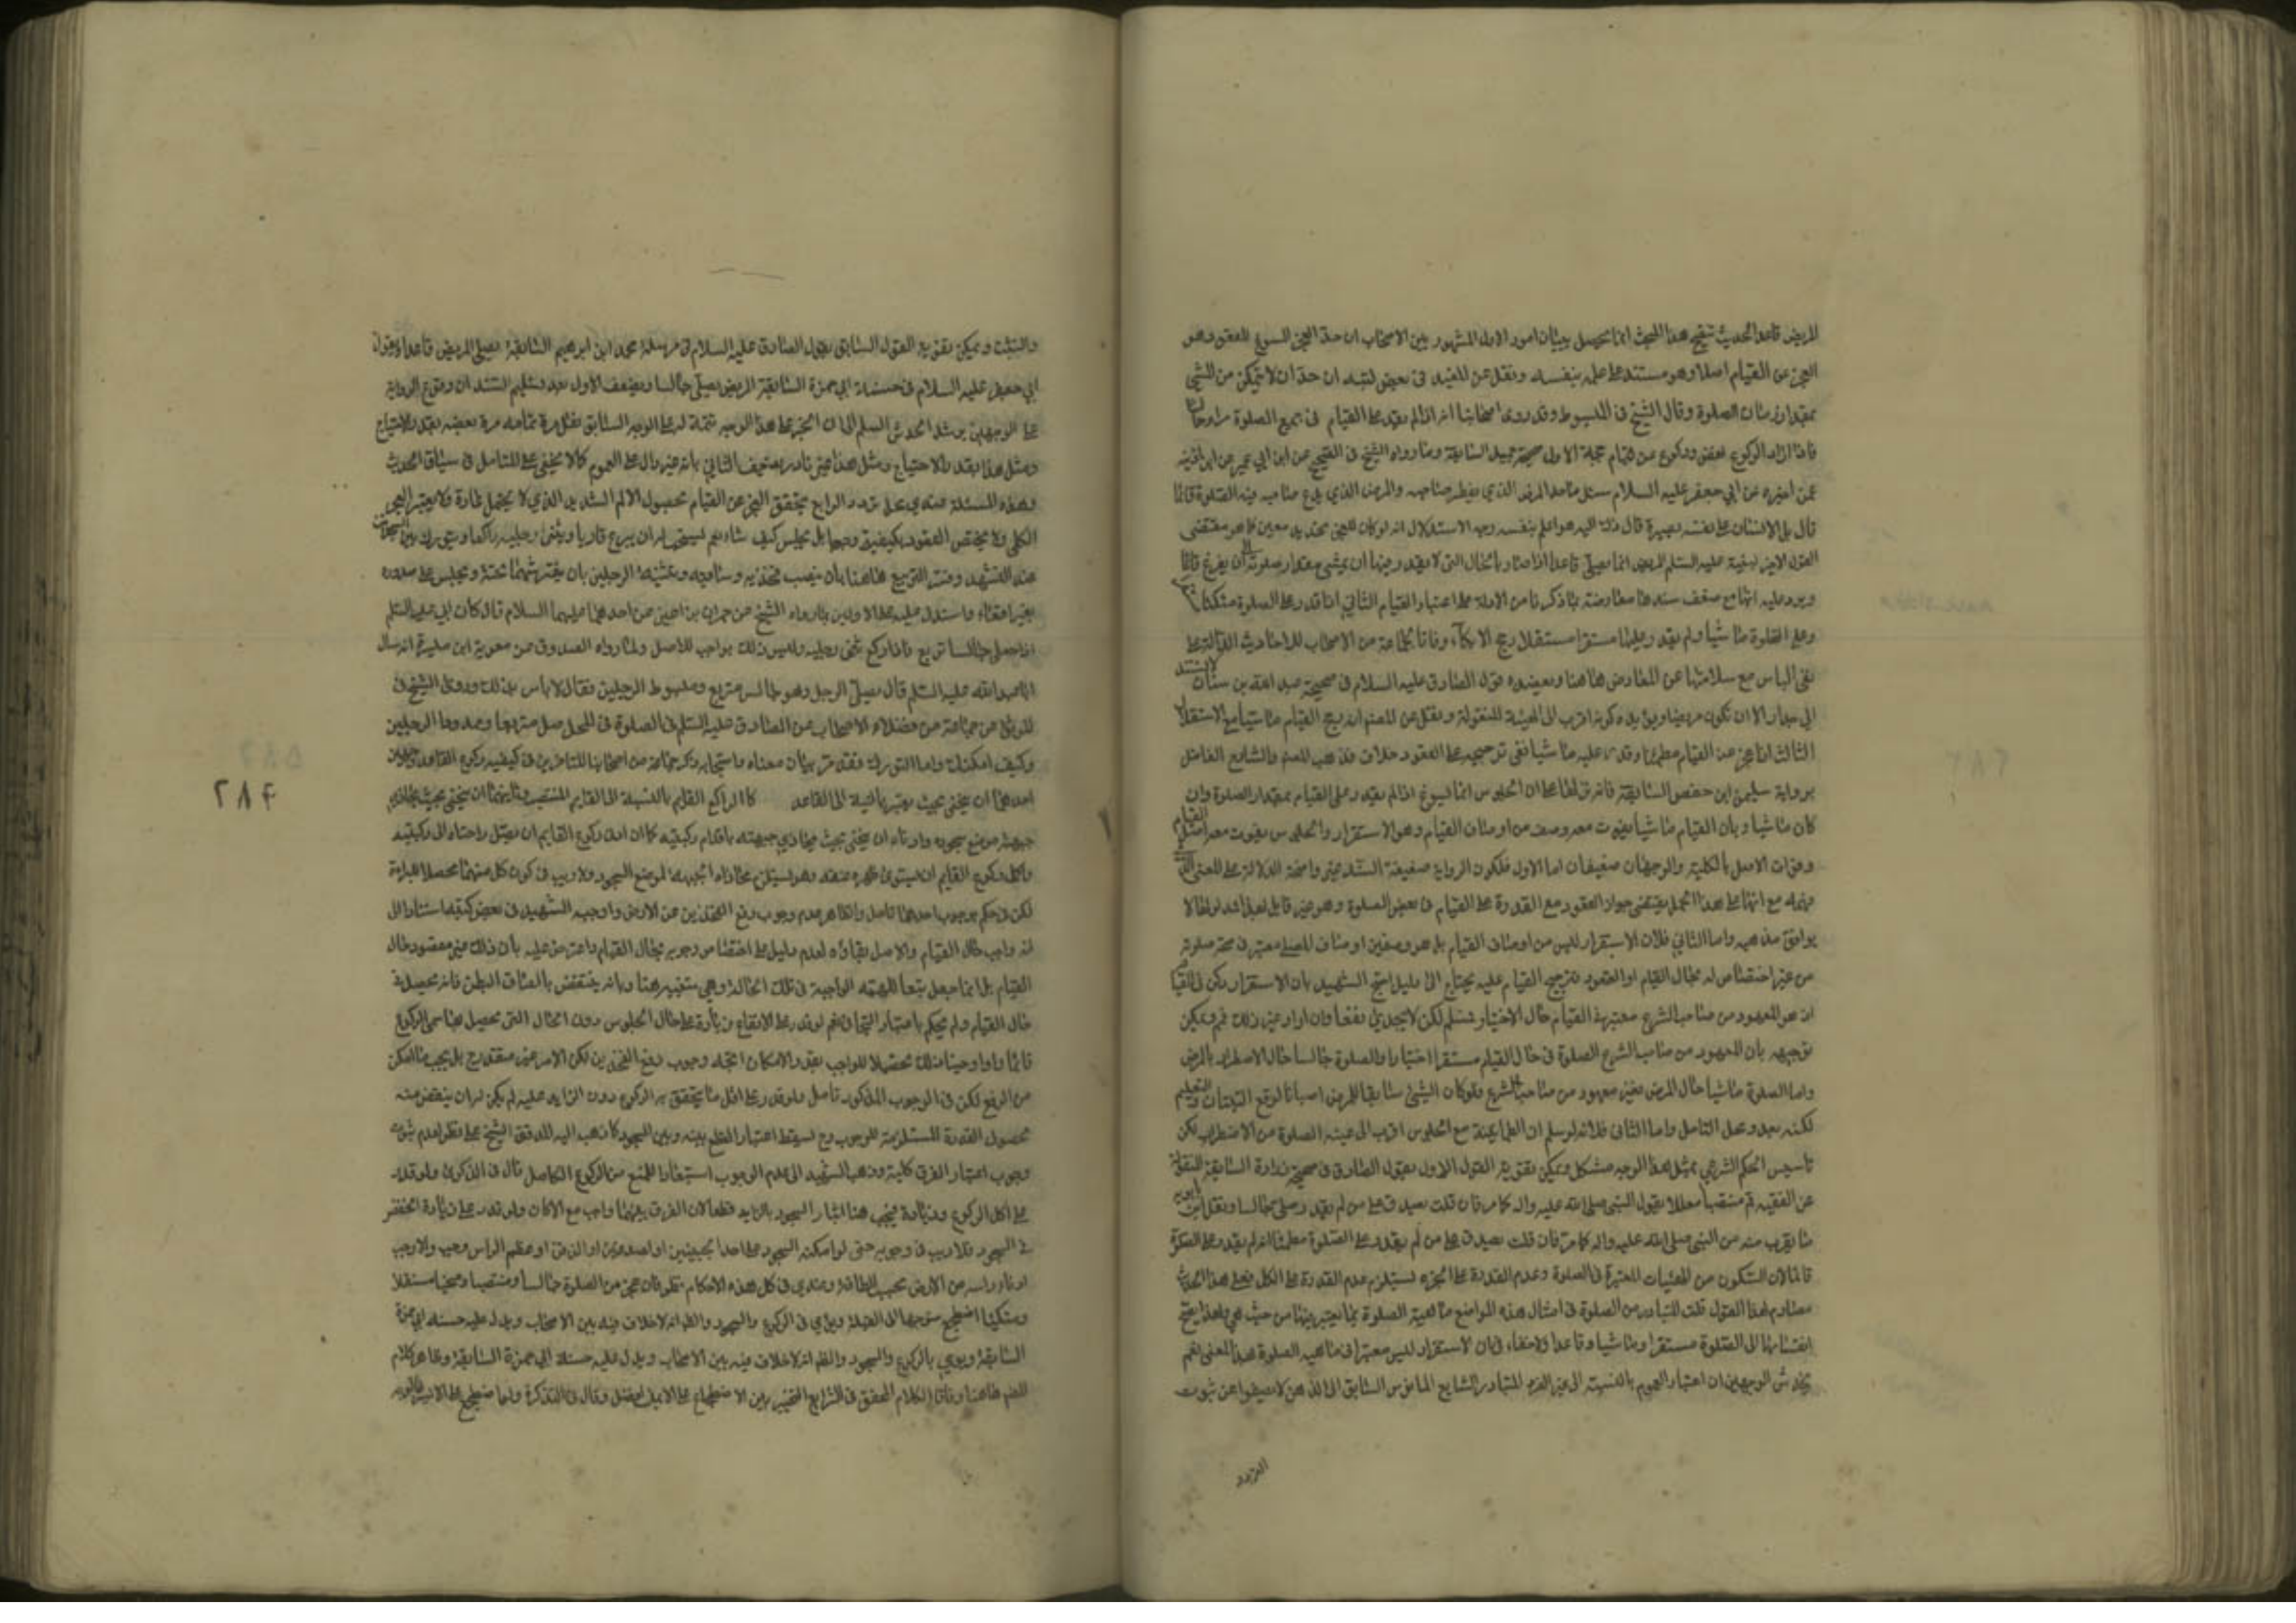 المريض قاعدا الحديث تنقيح هذا المبحث انما يحصل ببيان امور الاول المشهور بين الاصحاب ان حد العجز المسوغ للقعود هو
العجز عن القيام اصلا وهو مستند الى علمه بنفسه ونقل عن المفيد في بعض كتبه ان حده ان لا يتمكن من المشي
بمقدار زمان الصلوة وقال الشيخ في المبسوط وقد روى اصحابنا انه اذا لم يقدر على القيام في جميع الصلوة
فاذا اراد الركوع نهض وركع عن قيام حجة الاول صحيحة جميل السابقة وما رواه الشيخ في الصحيح عن ابن ابي عمير عن ابن اذينة
عمن اخبره عن ابي جعفر عليه السلام سئل ما حد المرض الذي يفطر صاحبه والمرض الذي يدع صاحبه فيه الصلوة قائما
قال بل الانسان على نفسه بصيرة قال ذلك اليه هو اعلم بنفسه وجه الاستدلال انه لو كان للعجز تحديد معين كما هو مقتضى
القول الاخير
ويرد عليه انها مع ضعف سندها معارضة بما ذكرنا من الادلة على اعتبار القيام الثاني اذا قدر على الصلوة متكئا
وعلى الصلوة ماشيا ولم يقدر عليها مستقرا مستقلا رجح الاتكاء وفاقا لجماعة من الاصحاب للاحاديث الدالة على
نفي الباس مع سلامتها عن المعارض هاهنا ويعضده قول الصادق عليه السلام في صحيحة عبد الله بن سنان
الى جدار الا ان تكون مريضا ويؤيده كونه اقرب الى الهيئة المنقولة ونقل عن المصنف انه رجح القيام ماشيا مع الاستقلال
الثالث اذا عجز عن القيام مطمئنا وقدر عليه ماشيا ففي ترجيحه على القعود خلاف فذهب المصنف والشارح الفاضل
برواية سليمن ابن حفص السابقة
كان ماشيا وبان القيام ماشيا يفوت معه وصف من اوصاف القيام وهو الاستقرار والجلوس يفوت معه اصل القيام
وفوات الاصل بالكلية والوجهان ضعيفان اما الاول فلكون الرواية ضعيفة السند غير واضحة الدلالة على المعنى الذي
فهمه مع انها على هذا المحمل يقتضي جواز القعود مع القدرة على القيام في بعض الصلوة وهو غير قائل به
يوافق مذهبه واما الثاني فلان الاستقرار ليس من اوصاف القيام بل هو وصف من اوصاف المصلي معتبر في صحة صلوته
من غير اختصاص له بحال القيام او القعود فترجيح القيام عليه يحتاج الى دليل احتج الشهيد بان الاستقرار ركن في القيام
اذ هو المعهود من صاحب الشرع معتبر هذا القيام حال الاختيار فمسلم لكن لا يجدي نفعا وان اراد غير ذلك فم ويمكن
توجيهه بان المعهود من صاحب الشرع الصلوة في حال القيام مستقرا اختيارا والصلوة جالسا حال الاضطرار بالمرض
واما الصلوة ماشيا حال المرض فغير معهود من صاحب الشرع فلو كان الشيء سابقا للمرض
لكنه بعد محل التامل واما الثاني فلانه لو سلم ان الطمانينة مع الجلوس اقرب الى هيئة الصلوة من الاضطراب لكن
تاسيس الحكم الشرعي بمثل هذا الوجه مشكل ويمكن تقوية القول الاول بقول الصادق في صحيحة زرارة السابقة المنقولة
عن الفقيه قم منتصبا معللا بقول النبي صلى الله عليه واله كما مر فان قلت يصدق على من لم يقدر وصلى جالسا
ما يقرب منه من النبي صلى الله عليه واله كما مر فان قلت يصدق على من لم يقدر على الصلوة مطمئنا انه لم يقدر على الصلوة
قائما لان السكون من الهيئات المعتبرة في الصلوة وعدم القدرة على الجزء يستلزم عدم القدرة على الكل فعلى هذا الحديث
مصادم لهذا القول قلت المتبادر من الصلوة في امثال هذه المواضع ماهية الصلوة بما يعتبر فيها من حيث هي ولهذا يصح
انقسامها الى الصلوة مستقرا وماشيا وقاعدا ولا خفاء في ان الاستقرار ليس معتبرا في ماهية الصلوة بهذا المعنى نعم
يخدش الوجهين ان اعتبار العموم بالنسبة الى غير الفرد المتبادر الشايع المانوس السابق الى الذهن لا يصفو عن ثبوت
التردد
والتثبت ويمكن تقوية القول السابق بقول الصادق عليه السلام في مرسلة محمد ابن ابراهيم السابقة يصلي المريض قاعدا وقول
ابي جعفر عليه السلام في حسنة ابي حمزة السابقة المريض يصلي جالسا ويضعف الاول بعد تسليم السند ان وقوع الرواية
على الوجهين
ومثل هذا غير نادر ويضعف الثاني بانه غير دال على العموم كما لا يخفى على المتامل في سياق الحديث
وهذه المسئلة عندي محل تردد الرابع يتحقق العجز عن القيام بحصول الالم الشديد الذي لا يتحمل عادة ولا يعتبر العجز
الكلي ولا يختص القعود بكيفية وجوبا بل يجلس كيف شاء نعم يستحب له ان يتربع قاريا ويثني رجليه راكعا ويتورك
عند التشهد وفسر التربيع هاهنا بان ينصب فخذيه وساقيه وتثنية الرجلين بان يفترشهما تحته ويجلس على صدورهما
بغير اقعاء واستدل عليه بما رواه الشيخ عن حمران بن اعين عن احدهما عليهما السلام قال كان ابي عليه السلم
اذا صلى جالسا تربع فاذا ركع ثنى رجليه وليس ذلك بواجب للاصل ولما رواه الصدوق عن معوية ابن ميسرة انه سال
ابا عبد الله عليه السلم قال يصلي الرجل وهو جالس متربع ومبسوط الرجلين فقال لا باس بذلك وروى الشيخ في
الموثق عن جماعة من فضلاء الاصحاب عن الصادق عليه السلم في الصلوة في المحمل صل متربعا وممدود الرجلين
وكيف امكنك واما التورك فقد مر بيان معناه واستحبابه وذكر جماعة من اصحابنا المتاخرين في كيفية ركوع القاعد وجهين
احدهما ان ينحني بحيث يصير بالنسبة الى القاعد كالراكع القايم بالنسبة الى القايم المنتصب وثانيهما ان ينحني بحيث يحاذي
جبهته موضع سجوده وادناه ان ينحني بحيث يحاذي جبهته ما قدام ركبتيه كما ان ادنى ركوع القايم ان يصل راحتاه الى ركبتيه
واكمل ركوع القايم ان يستوي ظهره وعنقه وهو يستلزم محاذاة الجبهة لموضع السجود ولا ريب في كون كل منهما محصلا للبراءة
لكن في حكم وجوب احدهما تامل والظاهر عدم وجوب رفع الفخذين عن الارض واوجبه الشهيد في بعض كتبه استنادا الى
انه واجب حال القيام والاصل بقاؤه لعدم دليل على اختصاص وجوبه بحال القيام واعترض عليه بان ذلك غير مقصود حال
القيام بل انما حصل تبعا للهيئة الواجبة في تلك الحالة وهي منتفية هنا وبانه ينتقض بالصاق البطن فانه يحصل في
حال القيام ولم يحكم باعتبار التجافي نعم لو قدر على الارتفاع زيادة على حال الجلوس دون الحال التي يحصل بها مسمى الركوع
قائما واوجبنا ذلك تحصيلا للواجب بقدر الامكان اتجه وجوب رفع الفخذين لكن الامر غير متقدر ح بل يجب ما امكن
من الرفع لكن في الوجوب المذكور تامل ولو قدر على اقل ما يتحقق به الركوع دون الزايد عليه لم يكن له ان ينقص منه
لحصول القدرة المستلزمة للوجوب وح يسقط اعتبار الفرق بينه وبين السجود كما ذهب اليه المدقق الشيخ علي نظرا لعدم ثبوت
وجوب اعتبار الفرق كلية وذهب الشهيد الى عدم الوجوب استبعادا للمنع من الركوع الكامل قال في الذكرى ولو قدر
على اكمل الركوع وزيادة فيجب هنا ايثار السجود بالزايد قطعا لان الفرق بينهما واجب مع الامكان ولو قدر على زيادة الخفض
في السجود فلا ريب في وجوبه حتى لو امكنه السجود على احد الجبينين او الصدغين او الذقن او عظم الراس وجب والا وجب
ادناء راسه من الارض بحسب الطاقة وعندي في كل هذه الاحكام نظر فان عجز عن الصلوة جالسا ومنتصبا ومنحنيا مستقلا
ومتكئا اضطجع متوجها الى القبلة ويومي في الركوع والسجود والظ انه لا خلاف فيه بين الاصحاب ويدل عليه حسنة ابي حمزة
السابقة ويومي بالركوع والسجود والظ انه لا خلاف فيه بين الاصحاب ويدل عليه حسنة ابي حمزة السابقة وظاهر كلام
المصنف هاهنا وفاقا لكلام المحقق في الشرايع التخيير بين الاضطجاع على الايمن افضل وقال في التذكرة ولو اضطجع على الايسر
٢٨۴